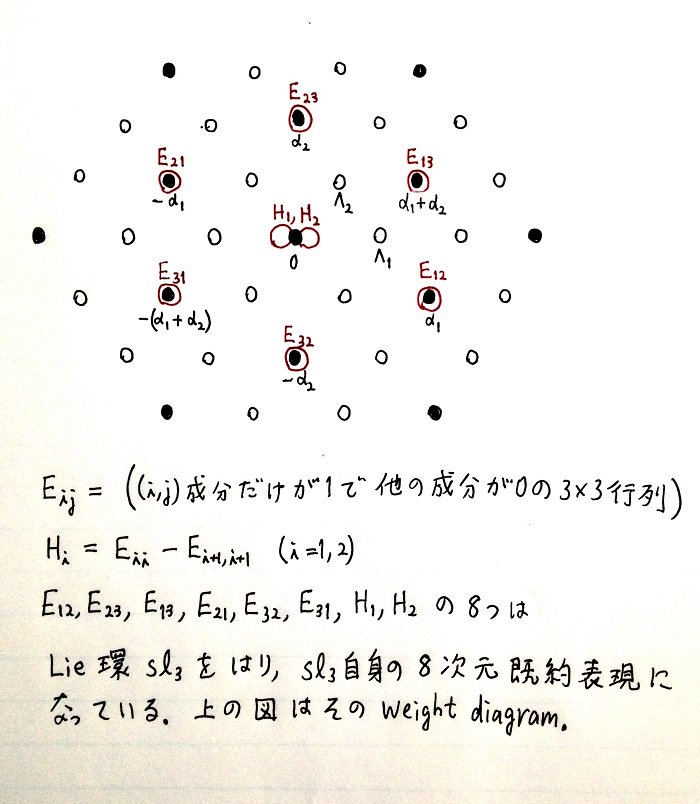 E₂₃
α₂
E₂₁
-α₁
E₁₃
α₁+α₂
Λ₂
H₁, H₂
0
Λ₁
E₃₁
-(α₁+α₂)
E₁₂
α₁
E₃₂
-α₂
Eᵢⱼ = ((i,j)成分だけが1で他の成分が0の3×3行列)
Hᵢ = Eᵢᵢ − Eᵢ₊₁,ᵢ₊₁ (i=1,2)
E₁₂, E₂₃, E₁₃, E₂₁, E₃₂, E₃₁, H₁, H₂ の 8つは
Lie 環 sl₃ をはり, sl₃自身の8次元既約表現に
なっている. 上の図はその weight diagram.